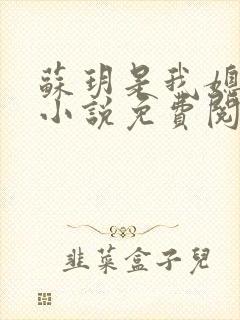 蘇玥是我媳
小說免費閱
韭菜盒子兒